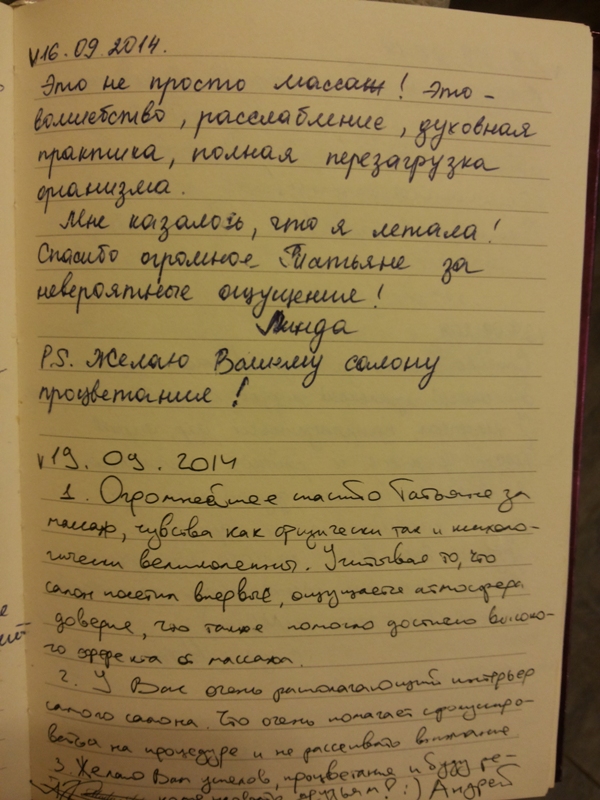 v16.09.2014.
Это не просто массаж! Это -
волшебство, расслабление, духовная
практика, полная перезагрузка
организма.
Мне казалось, что я летала!
Спасибо огромное Татьяне за
невероятные ощущения!
Линда
P.S. Желаю Вашему салону
процветания!
v19.09.2014
1. Огромнейшее спасибо Татьяне за
массаж, чувства как физически так и психоло-
гически великолепны. Учитывая то, что
салон посетил впервые, ощущается атмосфера
доверия, что также помогло достичь высоко-
го эффекта от массажа.
2. У Вас очень располагающий интерьер
самого салона. Что очень помагает
на процедуре и не рассеивать внимание
3. Желаю Вам успехов, процветания и буду ре-
друзьям! :) Андрей